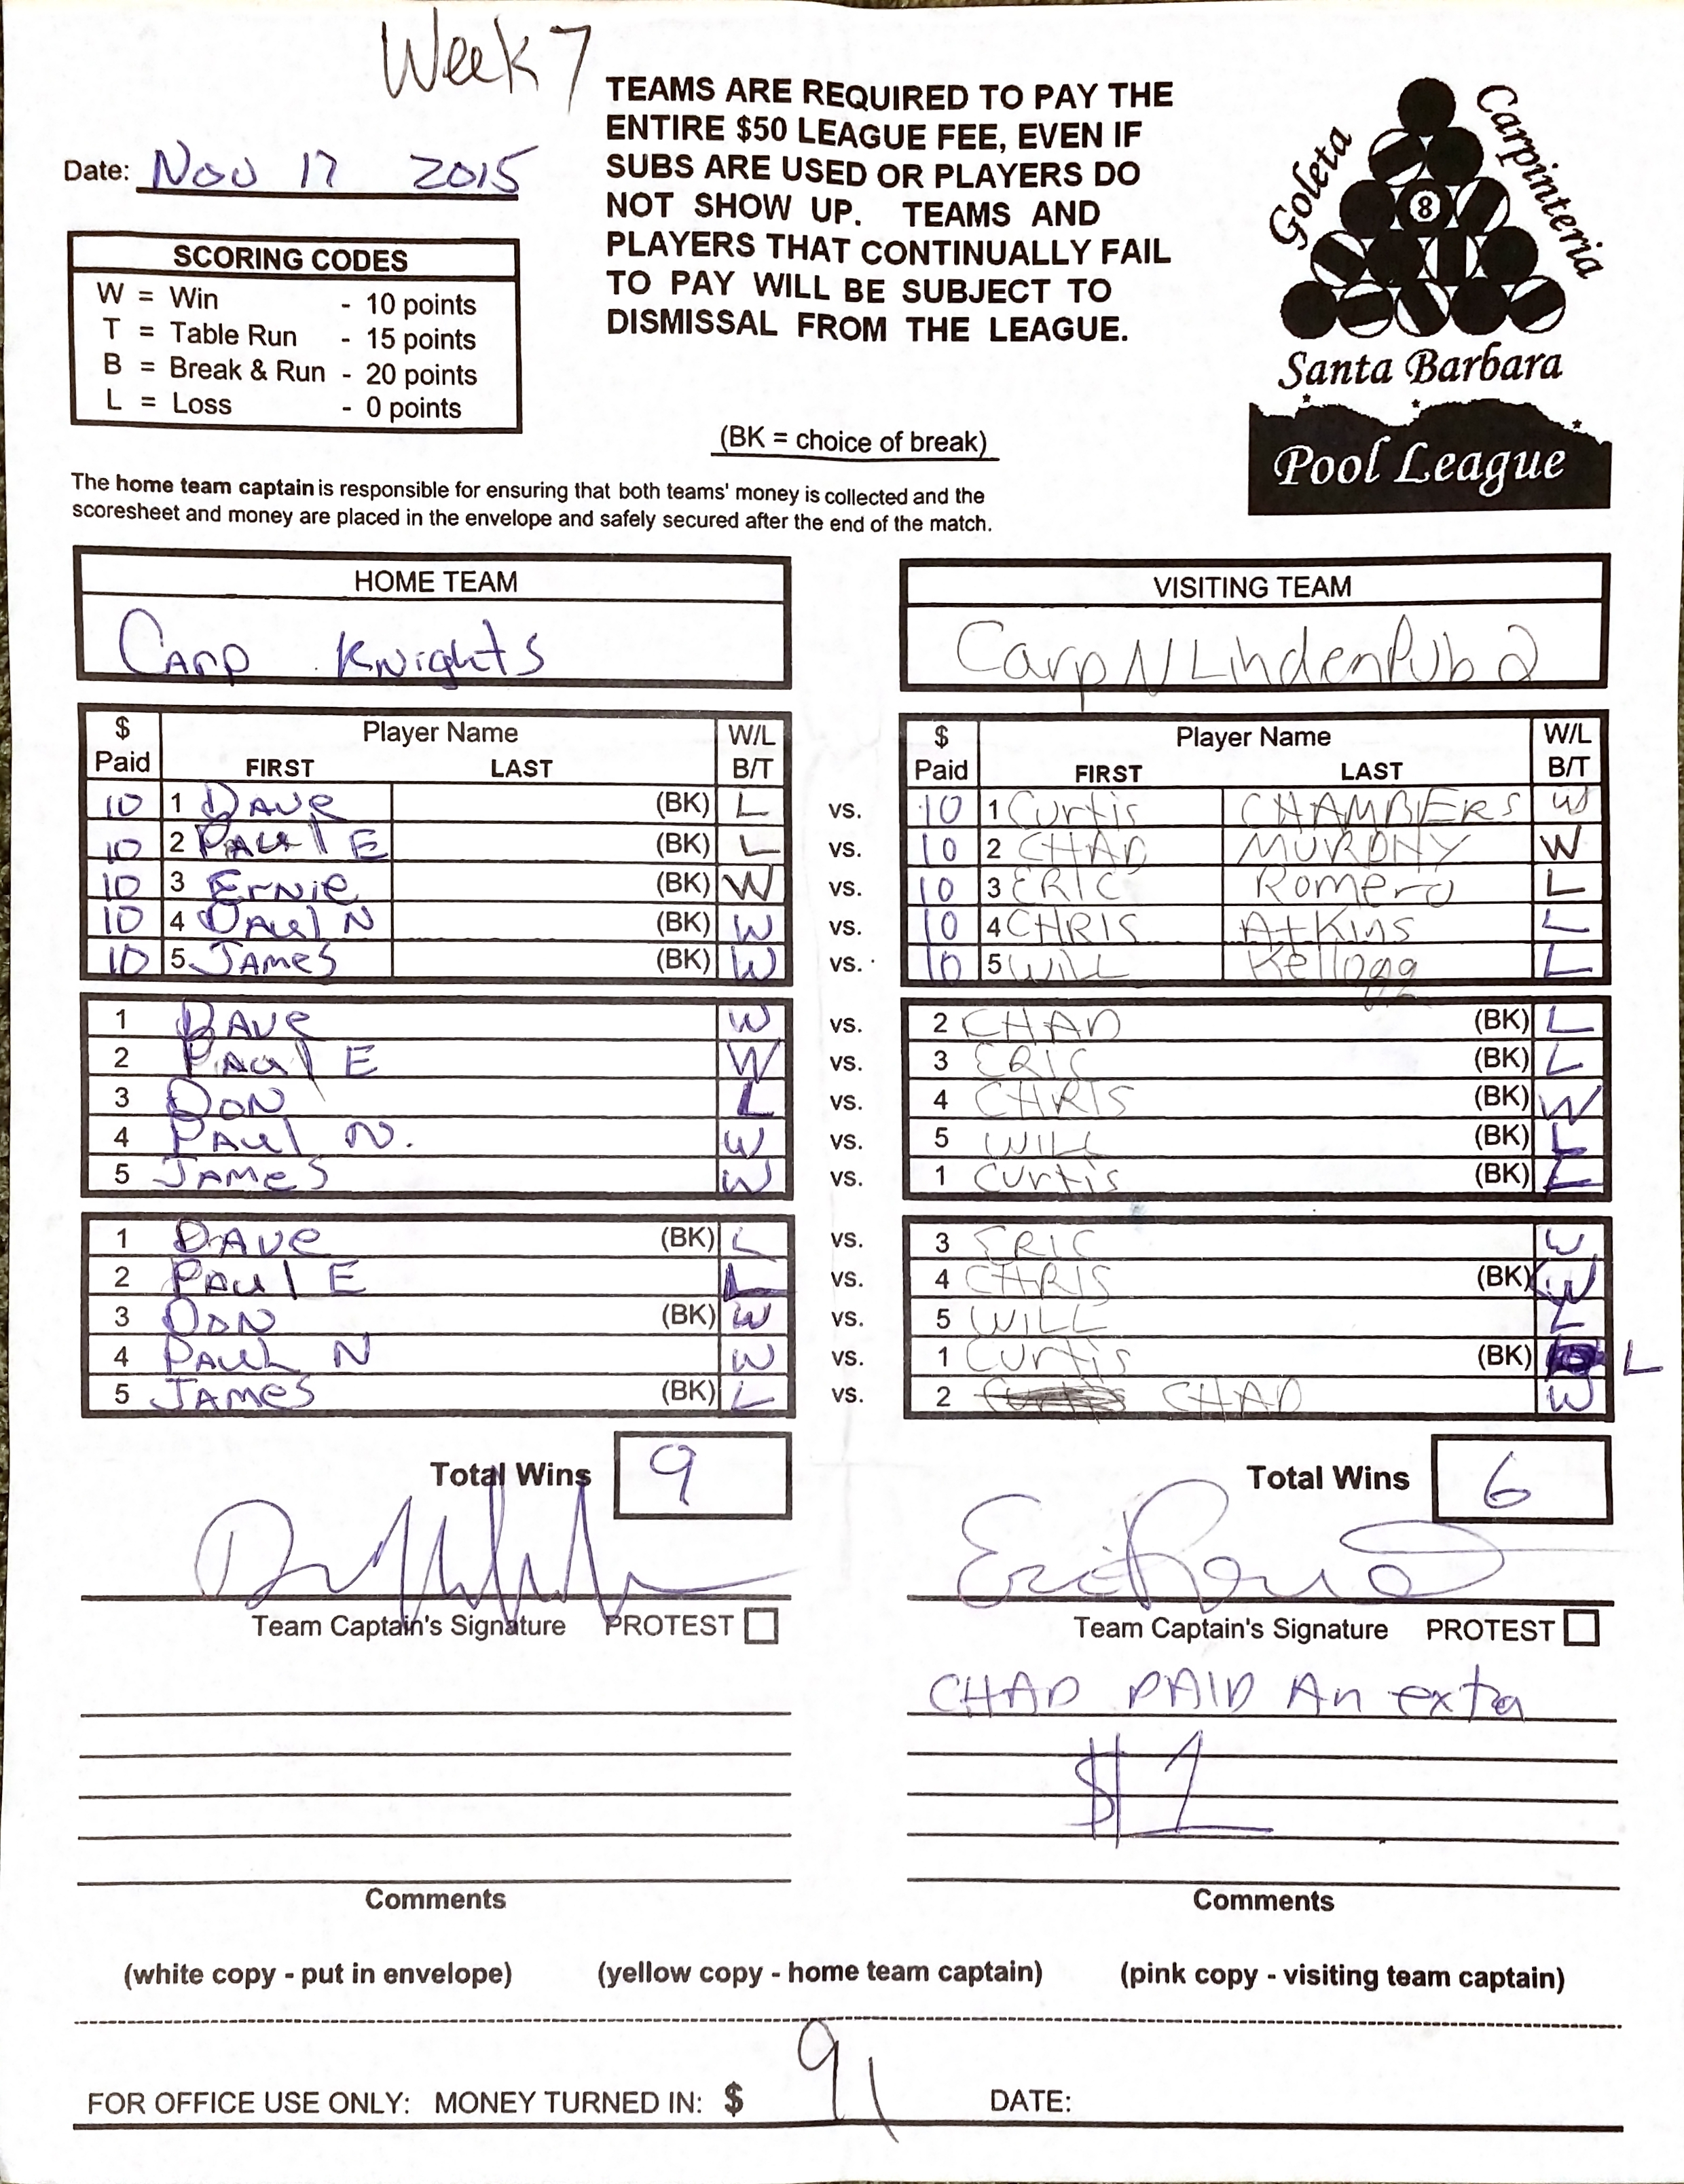 Week 7
Date: Nov 17 2015
TEAMS ARE REQUIRED TO PAY THE
ENTIRE $50 LEAGUE FEE, EVEN IF
SUBS ARE USED OR PLAYERS DO
NOT SHOW UP. TEAMS AND
PLAYERS THAT CONTINUALLY FAIL
TO PAY WILL BE SUBJECT TO
DISMISSAL FROM THE LEAGUE.
Goleta
Carpinteria
8
Santa Barbara
Pool League
SCORING CODES
W = Win - 10 points
T = Table Run - 15 points
B = Break & Run - 20 points
L = Loss - 0 points
(BK = choice of break)
The home team captain is responsible for ensuring that both teams' money is collected and the
scoresheet and money are placed in the envelope and safely secured after the end of the match.
HOME TEAM VISITING TEAM
Carp Knights CarpNLindenPub 2
$ Paid Player Name FIRST LAST W/L B/T $ Paid Player Name FIRST LAST W/L B/T
10 1 DAVE (BK) L vs. 10 1 Curtis CHAMBERS W
10 2 PAUL E (BK) L vs. 10 2 CHAD MURPHY W
10 3 Ernie (BK) W vs. 10 3 ERIC Romero L
10 4 PAUL N (BK) W vs. 10 4 CHRIS Atkins L
10 5 JAMES (BK) W vs. 10 5 WILL Kellogg L
1 DAVE W vs. 2 CHAD (BK) L
2 PAUL E W vs. 3 ERIC (BK) L
3 DON L vs. 4 CHRIS (BK) W
4 PAUL N. W vs. 5 WILL (BK) L
5 JAMES W vs. 1 Curtis (BK) L
1 DAVE (BK) L vs. 3 ERIC W
2 PAUL E L vs. 4 CHRIS (BK) W
3 DON (BK) W vs. 5 WILL L
4 PAUL N W vs. 1 Curtis (BK) L
5 JAMES (BK) L vs. 2 CHAD W
Total Wins 9 Total Wins 6
Eric Romero
Team Captain's Signature PROTEST Team Captain's Signature PROTEST
CHAD PAID An exta
$1
Comments Comments
(white copy - put in envelope) (yellow copy - home team captain) (pink copy - visiting team captain)
FOR OFFICE USE ONLY: MONEY TURNED IN: $ 91 DATE: